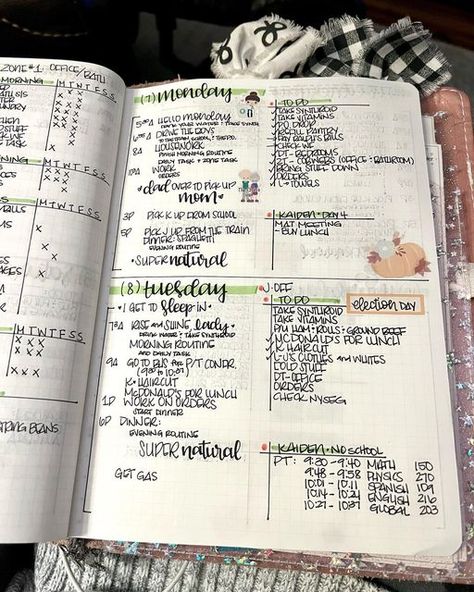 ZONE #1 OFFICE/BATH
MORNING M T W T F S S
M T W T F S S
M T W T F S S
STRING BEANS
(7) monday
HELLO monday
DRINK YOUR WATER : TAKE SYNTHR
DRIVE THE BOYS
8A HOUSEWORK
FINISH MORNING ROUTINE
DAILY TASK + ZONE TASK
WORK
ORDERS
dad OVER TO PICK UP
mom
3P PICK K UP FROM SCHOOL
5P PICK J UP FROM THE TRAIN
DINNER: SPAGHETTI
EVENING ROUTINE
SUPER natural
TO DO
TAKE SYNTROID
TAKE VITAMINS
PO DROP
REFILL PANTRY
PAY RALPH'S BILLS
CHECK WE
DT - BEDROOMS
BL - CORNERS (OFFICE : BATHROOM)
BRING STUFF DOWN
ORDERS
L - TOWELS
KAIDEN • DAY 4
MAT MEETING
- BUY LUNCH
(8) tuesday
I GET TO SLEEP IN
7:30A RISE and SHINE, Lady
DRINK WATER : TAKE SYNTROID
MORNING ROUTINE
AND DAILY TASK
9A GO TO BHS FOR P/T CONFER.
(9:20 to 10:37)
K • HAIRCUT
McDONALD'S FOR LUNCH
1P WORK ON ORDERS
START DINNER
6P DINNER:
EVENING ROUTINE
SUPER natural
GET GAS
J-OFF
TO DO
election DAY
TAKE SYNTHROID
TAKE VITAMINS
P/U HAM : ROLLS : GROUND BEEF
MCDONALD'S FOR LUNCH
K HAIRCUT
L-J'S CLOTHES and WHITES
FOLD STUFF
DT-OFFICE
ORDERS
CHECK NYSEG
KAIDEN • NO SCHOOL
PT: 9:30 - 9:40 MATH 150
9:48 - 9:58 PHYSICS 270
10:01 - 10:11 SPANISH 109
10:14 - 10:24 ENGLISH 216
10:27 - 10:37 GLOBAL 203